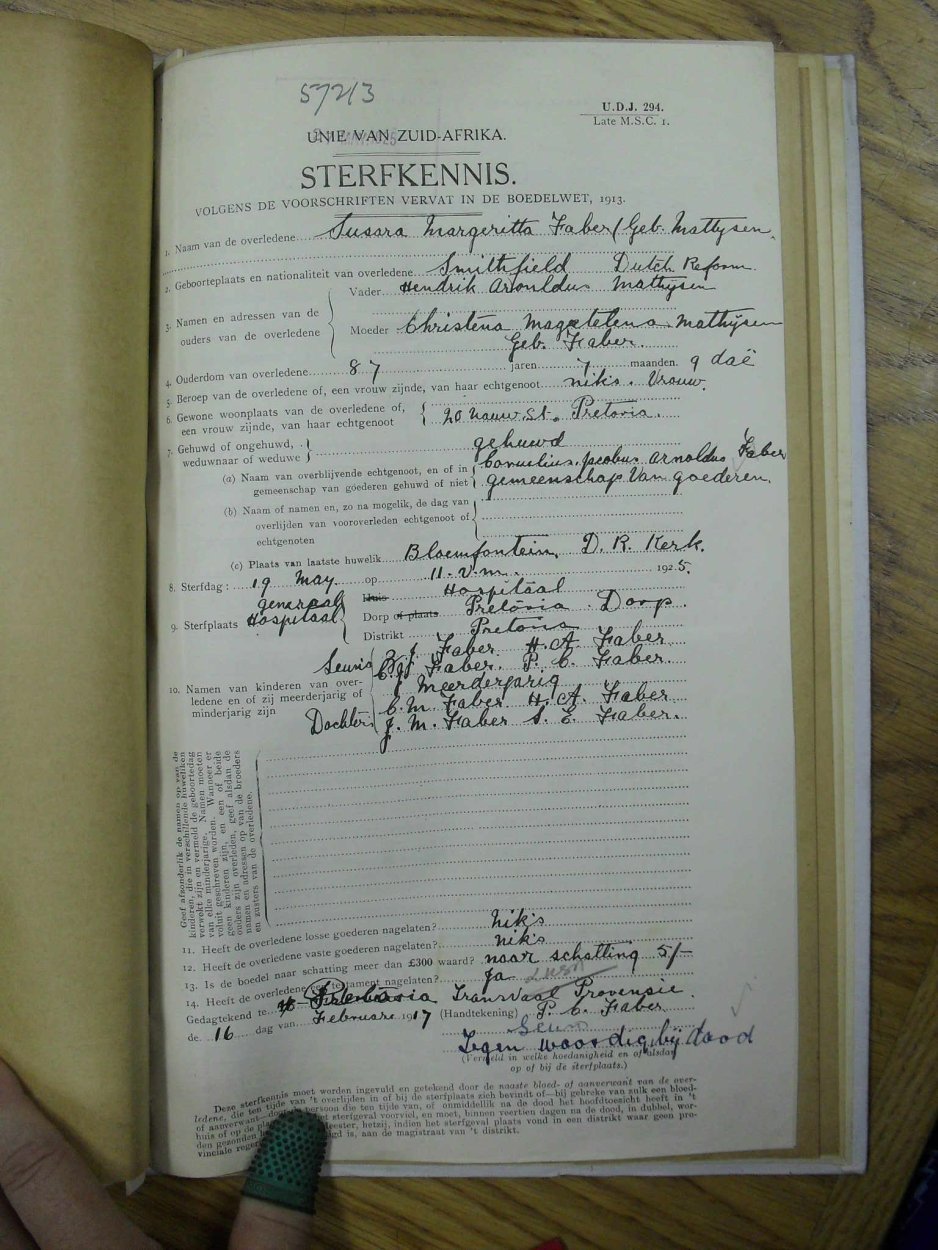 57213
U.D.J. 294.
Late M.S.C. 1.
UNIE VAN ZUID-AFRIKA.
STERFKENNIS.
VOLGENS DE VOORSCHRIFTEN VERVAT IN DE BOEDELWET, 1913.
1. Naam van de overledene Susara Margeritta Faber (Geb. Mattysen.
2. Geboorteplaats en nationaliteit van overledene Smithfield Dutch Reform
3. Namen en adressen van de ouders van de overledene
Vader Hendrik Arnuldus Mathysen
Moeder Christena Magetelena Mathysen
Geb. Faber.
4. Ouderdom van overledene 87 jaren 7 maanden. 9 daë
5. Beroep van de overledene of, een vrouw zijnde, van haar echtgenoot niks. Vrouw.
6. Gewone woonplaats van de overledene of,
een vrouw zijnde, van haar echtgenoot
20 nauw. St. Pretoria.
7. Gehuwd of ongehuwd,
weduwnaar of weduwe
gehuwd
(a) Naam van overblijvende echtgenoot, en of in
gemeenschap van goederen gehuwd of niet
Cornelius. Jacobus Arnoldus Faber
gemeenschap Van goederen.
(b) Naam of namen en, zo na mogelik, de dag van
overlijden van vooroverleden echtgenoot of
echtgenoten
(c) Plaats van laatste huwelik Bloemfontein, D. R. Kerk.
8. Sterfdag: 19 May op 11. v.m. 1925.
9. Sterfplaats generaal Hospitaal
Huis Hospitaal
Dorp of plaats Pretoria Dorp.
Distrikt Pretoria
10. Namen van kinderen van over-
ledene en of zij meerderjarig of
minderjarig zijn
Seuns
J. Faber H. A. Faber
Faber. P. C. Faber.
Meerderjarig
Dochters
C. M. Faber H. A. Faber
J. M. Faber S. E. Faber.
Geef afzonderlik de namen op van de
kinderen, die in verschillende huweliken
verwekt zijn en vermeld de geboortedag
van elke minderjarige. Namen moeten
voluit geschreven worden. Wanneer er
geen kinderen zijn, en een of beide
ouders zijn overleden, geef alsdan de
namen en adressen op van de broeders
en zusters van de overledene.
11. Heeft de overledene losse goederen nagelaten? Niks
12. Heeft de overledene vaste goederen nagelaten? niks
13. Is de boedel naar schatting meer dan £300 waard? naar schatting 5/-
14. Heeft de overledene een testament nagelaten? Ja
Gedagtekend te Pretoria Transvaal Provensie
de. 16 dag van Februarie 1917 (Handtekening) P. C. Faber
Seun
Tegen woordig bij dood
(Vermeld in welke hoedanigheid en of alsdan
op of bij de sterfplaats.)
Deze sterfkennis moet worden ingevuld en getekend door de naaste bloed- of aanverwant van de over-
ledene, die ten tijde van 't overlijden in of bij de sterfplaats zich bevindt of—bij gebreke van zulk een bloed-
of aanverwant—door persoon die ten tijde van, of onmiddellik na de dood het hoofdtoezicht heeft in 't
huis of op de sterfgeval voorviel, en moet, binnen veertien dagen na de dood, in dubbel, wor-
den gezonden hetzij, indien het sterfgeval plaats vond in een distrikt waar geen pro-
vinciale is, aan de magistraat van 't distrikt.